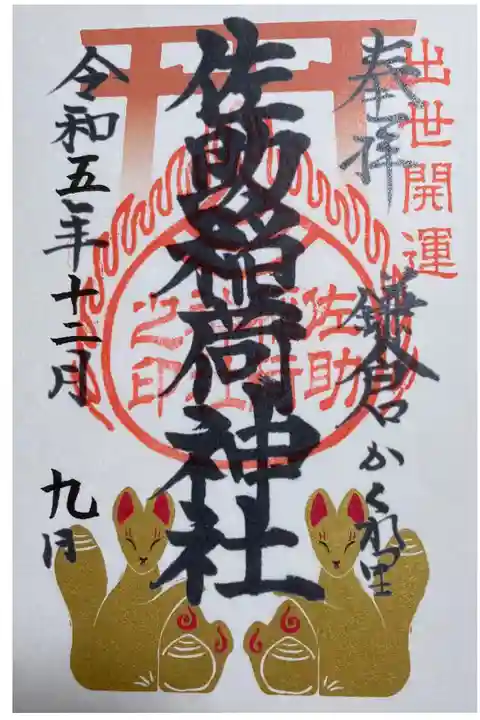 出世開運
奉拝
鎌倉かくれ里
佐助稲荷神社
佐助
稲荷
神社
之印
令和五年十二月
九日